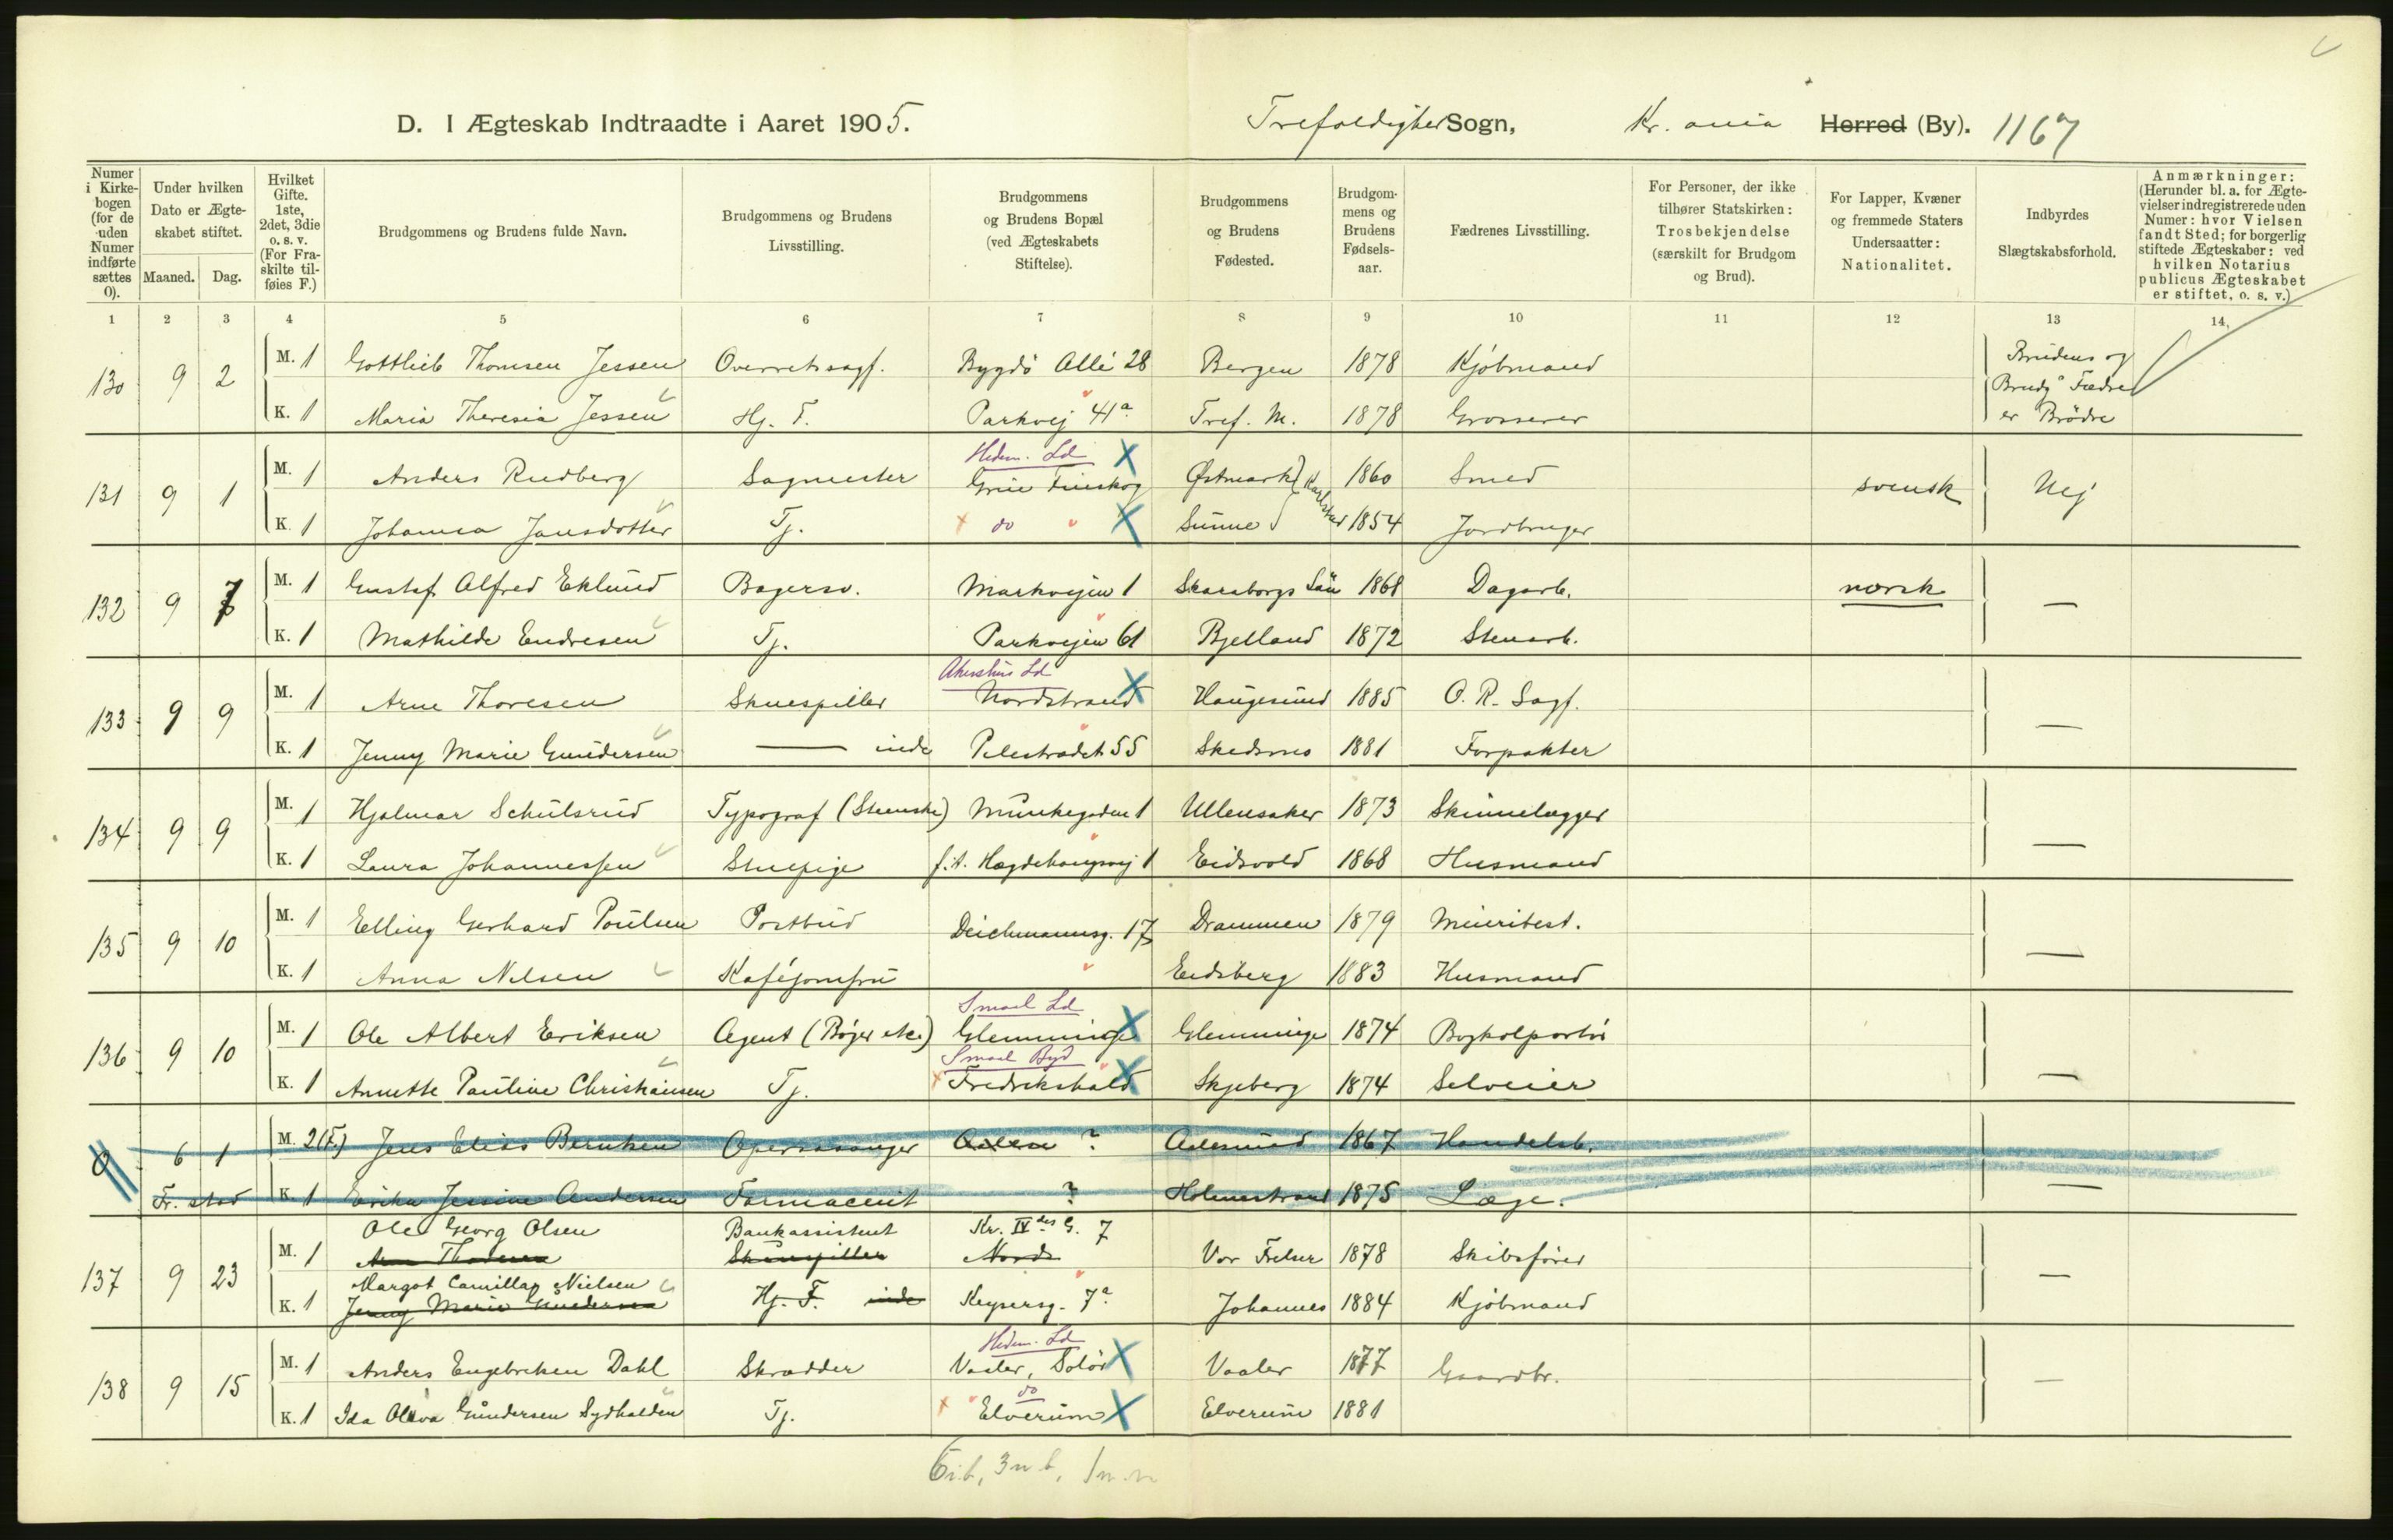 D. I Ægteskab Indtraadte i Aaret 1905. Trefoldighed Sogn, Kr. ania Herred (By). 1167
Numer i Kirkebogen (for de uden Numer indførte sættes 0).
Under hvilken Dato er Ægteskabet stiftet.
Maaned. Dag.
Hvilket Gifte. 1ste, 2det, 3die o. s. v. (For Fraskilte tilføies F.)
Brudgommens og Brudens fulde Navn.
Brudgommens og Brudens Livsstilling.
Brudgommens og Brudens Bopæl (ved Ægteskabets Stiftelse).
Brudgommens og Brudens Fødested.
Brudgommens og Brudens Fødselsaar.
Fædrenes Livsstilling.
For Personer, der ikke tilhører Statskirken: Trosbekjendelse (særskilt for Brudgom og Brud).
For Lapper, Kvæner og fremmede Staters Undersaatter: Nationalitet.
Indbyrdes Slægtskabsforhold.
Anmærkninger: (Herunder bl. a. for Ægtevielser indregistrerede uden Numer: hvor Vielsen fandt Sted; for borgerlig stiftede Ægteskaber: ved hvilken Notarius publicus Ægteskabet er stiftet, o. s. v.)
1 2 3 4 5 6 7 8 9 10 11 12 13 14.
130 9 2 M. 1 Gottlieb Thomsen Jessen Overretssagf. Bygdö Allé 28 Bergen 1878 Kjöbmand Brudens og Brudg Fædre er Brödre
K. 1 Maria Theresia Jessen Hj. F. Parkvej 41a Tref. M. 1878 Grosserer
Hedm. Ld
131 9 1 M. 1 Anders Rudberg Sagmester Grue Finskog Østmark Karlstad 1860 Smed svensk Nej
K. 1 Johanna Jansdotter Tj. do Sunne 1854 Jordbruger
132 9 7 M. 1 Gustaf Alfred Eklund Bagersv. Markvejen 1 Skaraborgs Län 1868 Dagarb. norsk —
K. 1 Mathilde Endresen Tj. Parkvejen 61 Bjelland 1872 Stenarb.
Akershus Ld
133 9 9 M. 1 Arne Thoresen Skuespiller Nordstrand Haugesund 1885 O. R. Sagf. —
K. 1 Jenny Marie Gundersen — inde Pilestrædet 55 Skedsmo 1881 Forpakter
134 9 9 M. 1 Hjalmar Schulsrud Typograf (Steenske) Munkegaden 1 Ullensaker 1873 Skinnelægger —
K. 1 Laura Johannessen Stuepige f.t. Hægdehaugsvej 1 Eidsvold 1868 Husmand
135 9 10 M. 1 Elling Gerhard Poulsen Postbud Deichmannsg. 17 Drammen 1879 Meieribest. —
K. 1 Anna Nilsen Kaféjomfru Eidsberg 1883 Husmand
Smaal Ld
136 9 10 M. 1 Ole Albert Eriksen Agent (Bøger etc.) Glemminge Glemminge 1874 Bogkolportör —
Smaal Byd
K. 1 Annette Pauline Christiansen Tj. Fredrikshald Skjeberg 1874 Selveier
0 6 1 M. 2(F.) Jens Elias Berntsen Operasanger Aalesu ? Aalesund 1867 Handelsb. —
Fr. stad K. 1 Erika Jensine Andersen Farmaceut ? Holmestrand 1875 Læge.
Ole Georg Olsen Bankassistent Kr. IV des G. 7
137 9 23 M. 1 Arne Thoresen Skuespiller Nords Vor Frelser 1878 Skibsförer —
Margot Camilla Nielsen
K. 1 Jenny Marie Gundersen Hj. F. inde Keysersg. 7a Johannes 1884 Kjöbmand
Hedm. Ld
138 9 15 M. 1 Anders Engebretsen Dahl Skrædder Vaaler, Solör Vaaler 1877 Gaardbr. —
do
K. 1 Ida Oliva Gundersen Sydhalden Tj. Elverum Elverum 1881
6 i.b, 3 u b, 1 m.